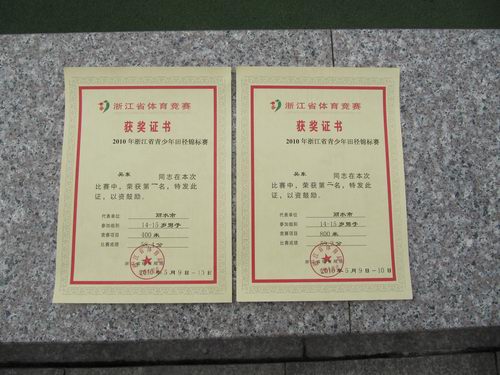 浙江省体育竞赛
获奖证书
2010年浙江省青少年田径锦标赛
吴东 同志在本次
比赛中，荣获第一名，特发此
证，以资鼓励。
代表单位 丽水市
参加组别 14-15岁男子
竞赛项目 400米
比赛成绩
2010年5月9日-10日
浙江省体育竞赛
获奖证书
2010年浙江省青少年田径锦标赛
吴东 同志在本次
比赛中，荣获第 名，特发此
证，以资鼓励。
代表单位 丽水市
参加组别 14-15岁男子
竞赛项目 800米
比赛成绩
2010年5月9日-10日